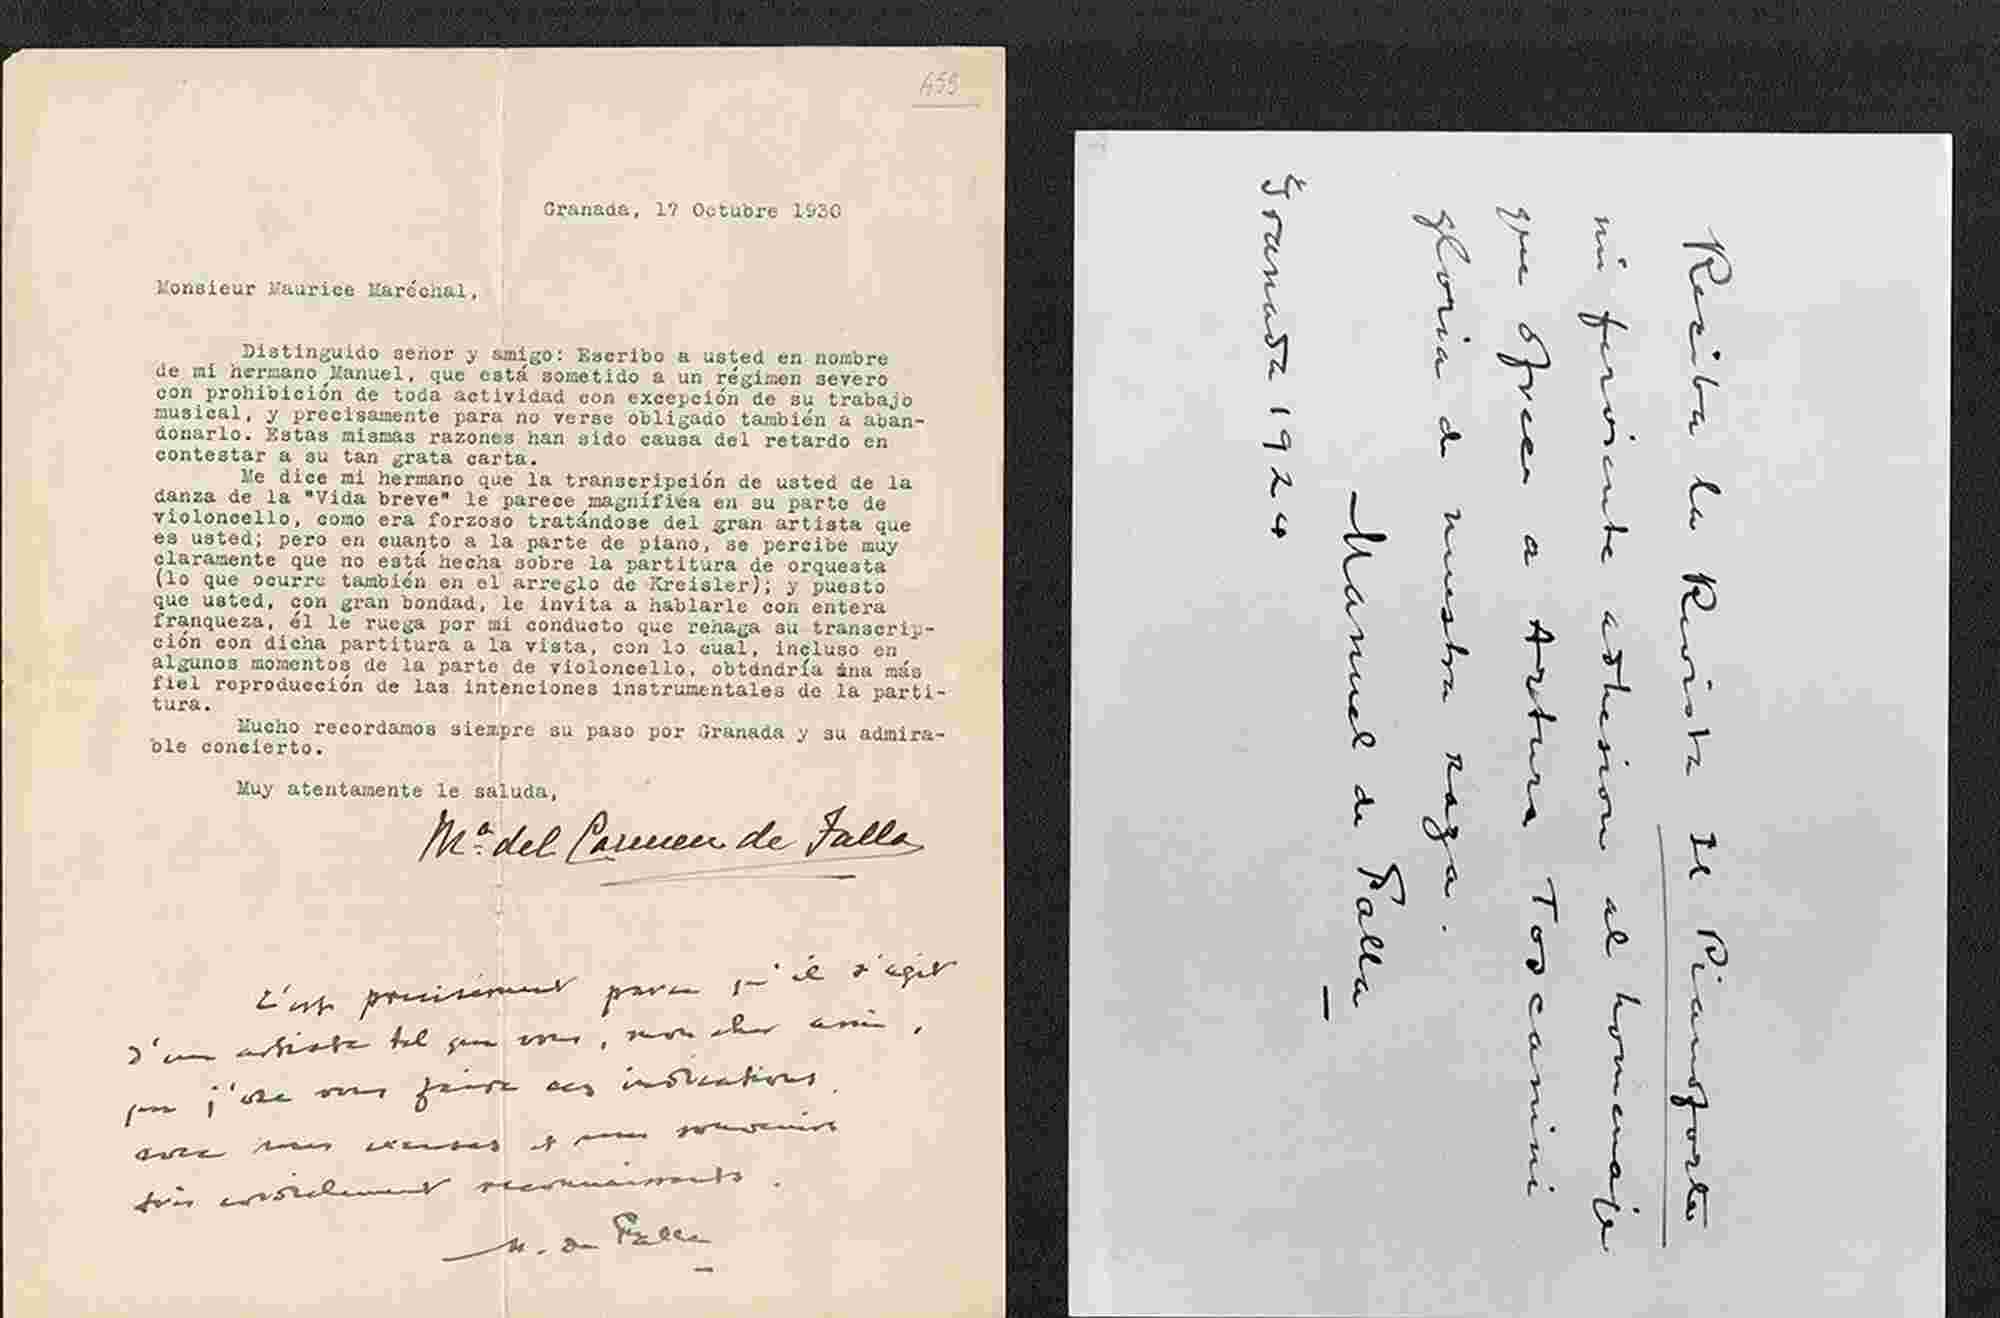 459
Granada, 17 Octubre 1930
Monsieur Maurice Maréchal,
Distinguido señor y amigo: Escribo a usted en nombre
de mi hermano Manuel, que está sometido a un régimen severo
con prohibición de toda actividad con excepción de su trabajo
musical, y precisamente para no verse obligado también a aban-
donarlo. Estas mismas razones han sido causa del retardo en
contestar a su tan grata carta.
Me dice mi hermano que la transcripción de usted de la
danza de la "Vida breve" le parece magnífica en su parte de
violoncello, como era forzoso tratándose del gran artista que
es usted; pero en cuanto a la parte de piano, se percibe muy
claramente que no está hecha sobre la partitura de orquesta
(lo que ocurre también en el arreglo de Kreisler); y puesto
que usted, con gran bondad, le invita a hablarle con entera
franqueza, él le ruega por mi conducto que rehaga su transcrip-
ción con dicha partitura a la vista, con lo cual, incluso en
algunos momentos de la parte de violoncello, obtendría una más
fiel reproducción de las intenciones instrumentales de la parti-
tura.
Mucho recordamos siempre su paso por Granada y su admira-
ble concierto.
Muy atentamente le saluda,
Mª del Carmen de Falla
C'est précisément parce qu'il s'agit
d'un artiste tel que vous, mon cher ami,
que j'ose vous faire ces indications.
avec mes excuses et mes souvenirs
très cordialement reconnaissants.
M. de Falla
Reciba la Revista Il Pianoforte
mi ferviente adhesion al homenaje
que ofrece a Arturo Toscanini
gloria de nuestra raza.
Manuel de Falla
Granada 1924